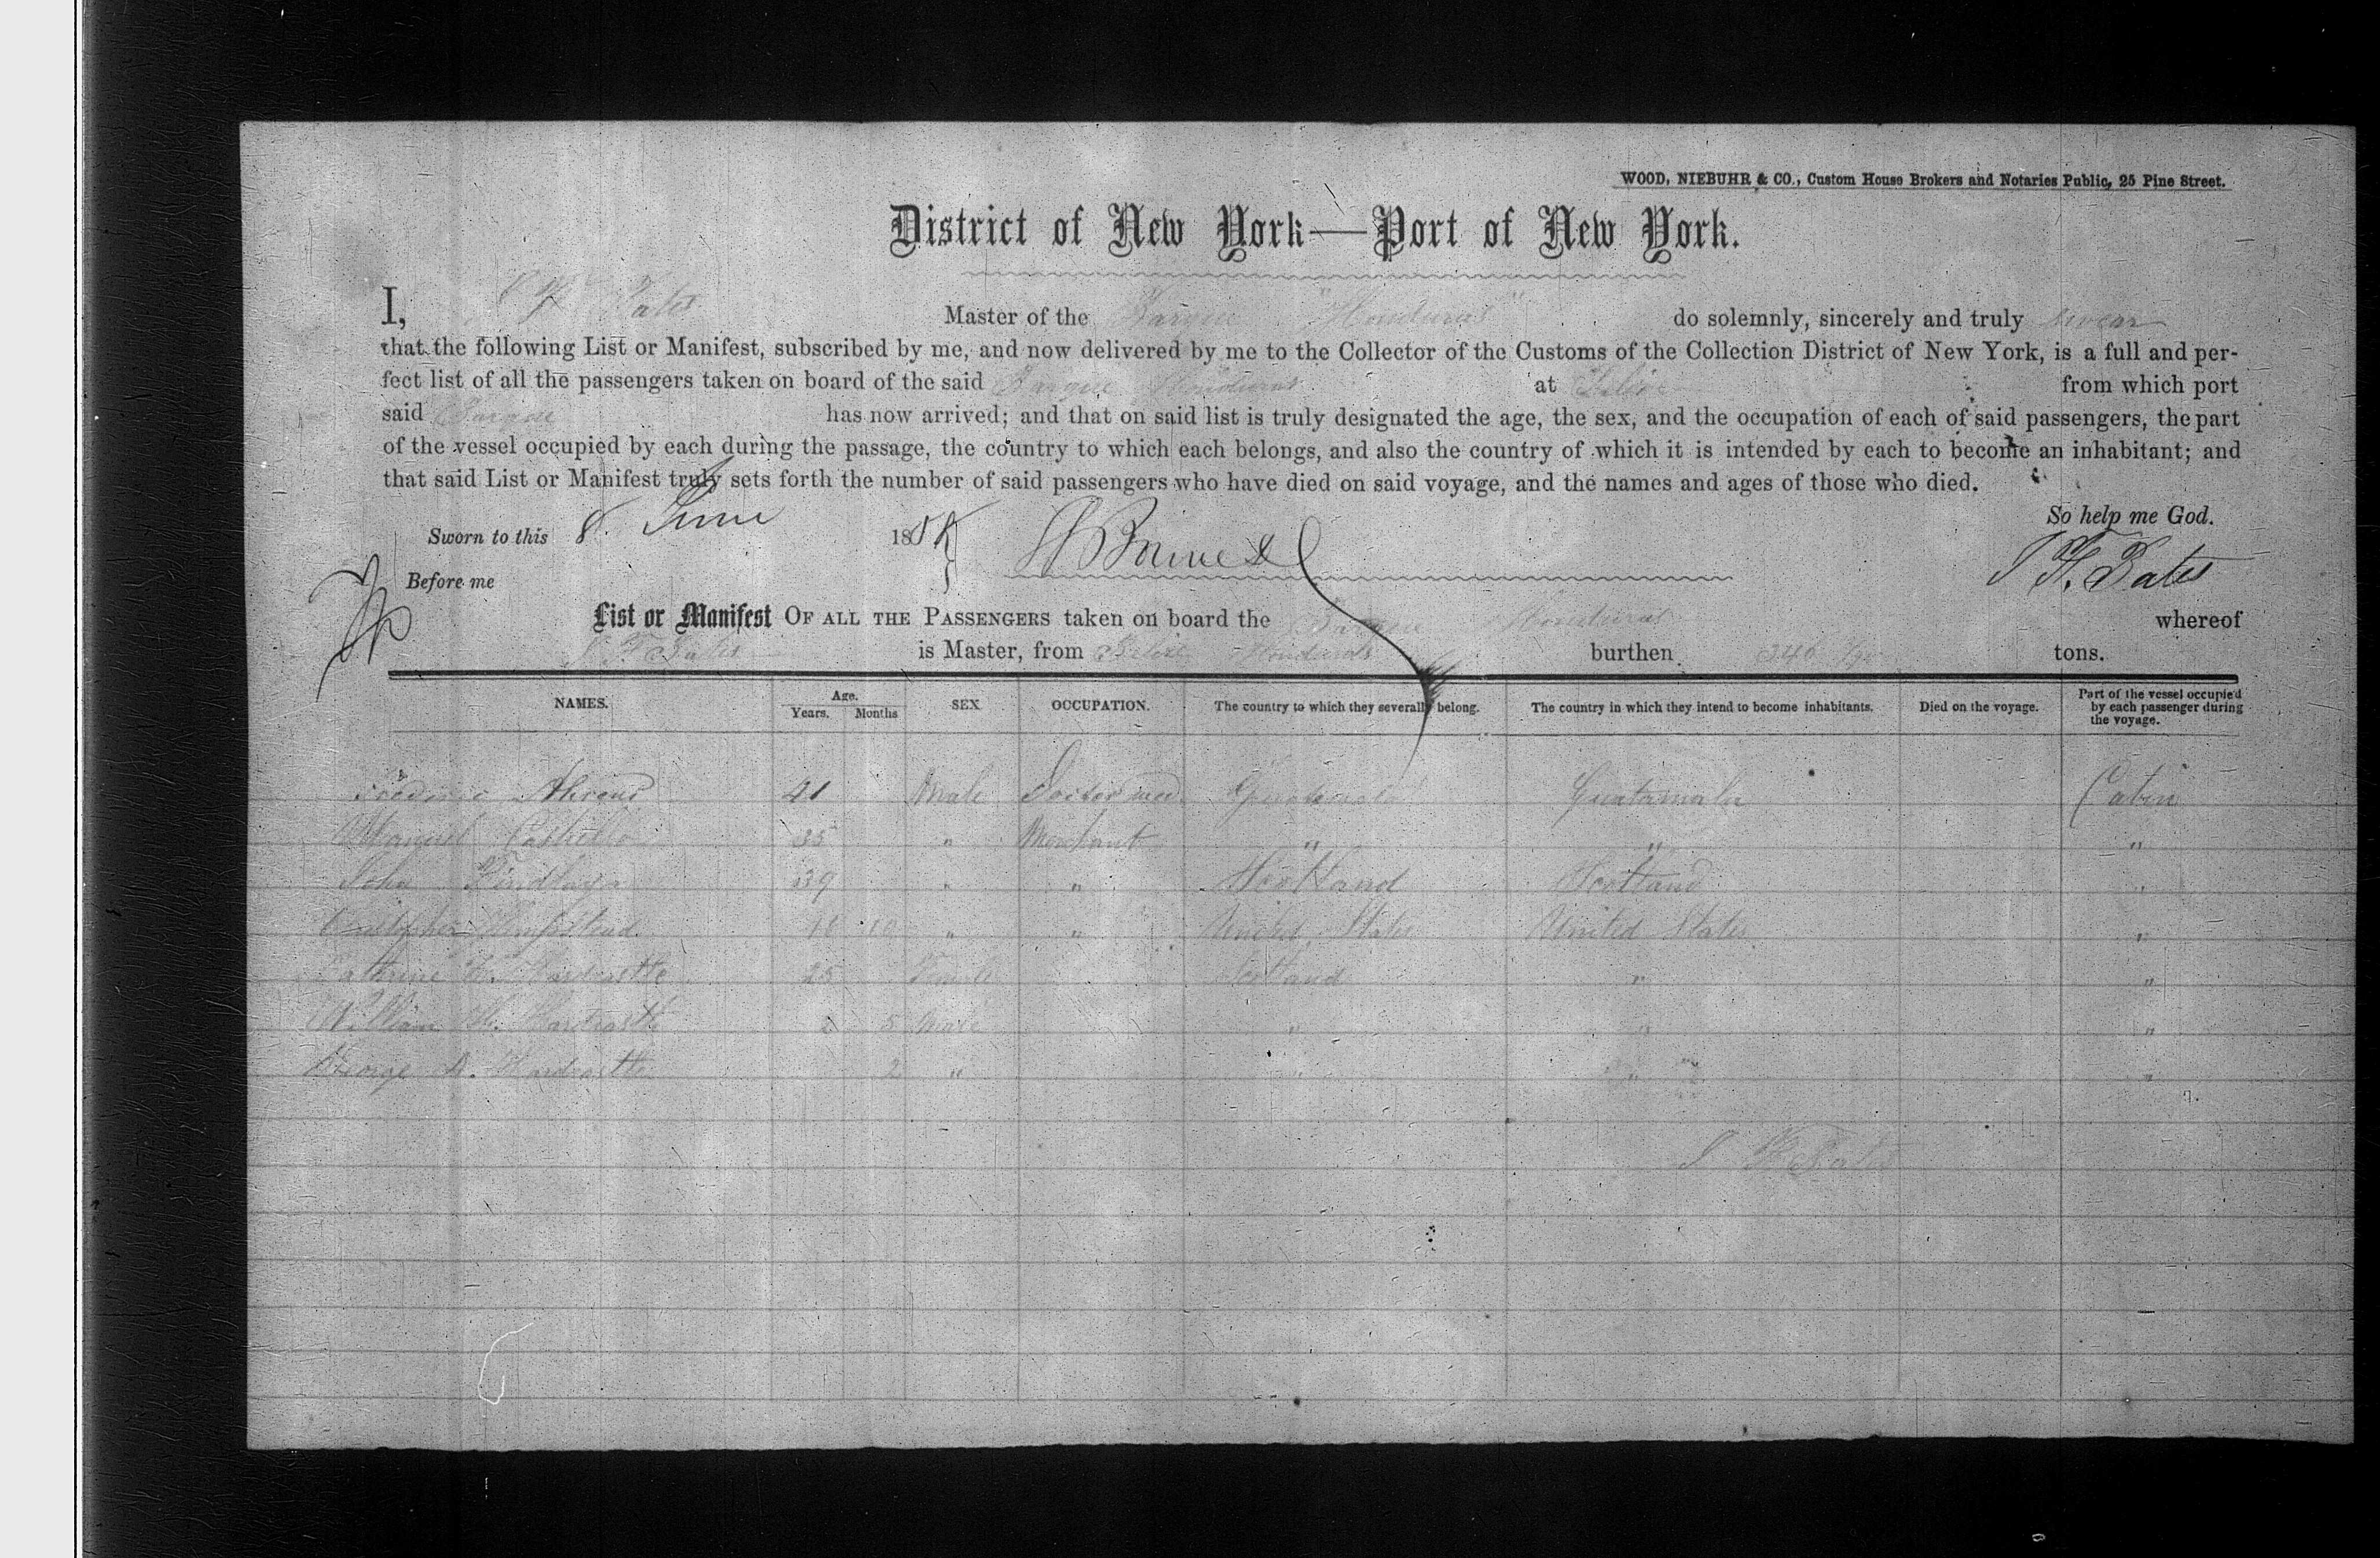 WOOD, NIEBUHR & CO., Custom House Brokers and Notaries Public, 25 Pine Street.
District of New York—Port of New York.
I, Master of the Barque "Honduras" do solemnly, sincerely and truly swear
that the following List or Manifest, subscribed by me, and now delivered by me to the Collector of the Customs of the Collection District of New York, is a full and per-
fect list of all the passengers taken on board of the said Barque Honduras at Belize from which port
said Barque has now arrived; and that on said list is truly designated the age, the sex, and the occupation of each of said passengers, the part
of the vessel occupied by each during the passage, the country to which each belongs, and also the country of which it is intended by each to become an inhabitant; and
that said List or Manifest truly sets forth the number of said passengers who have died on said voyage, and the names and ages of those who died.
So help me God.
Sworn to this 8. June 18
Before me
List or Manifest OF ALL THE PASSENGERS taken on board the Barque Honduras whereof
is Master, from Belize Honduras burthen 346 tons.
NAMES. Age. Years. Months SEX. OCCUPATION. The country to which they severally belong. The country in which they intend to become inhabitants. Died on the voyage. Part of the vessel occupied by each passenger during the voyage.
41 Male Doctor med. Guatemala Guatamala Cabin
Manuel Castillo 35 " Merchant " " "
John 39 " " Scotland Scotland "
Hempstead 18 10 " " United States United States "
Cathrine Hardcastle 25 Female Scotland " "
William H. Hardcastle 2 5 Male " " "
George A. Hardcastle 2 " " " "